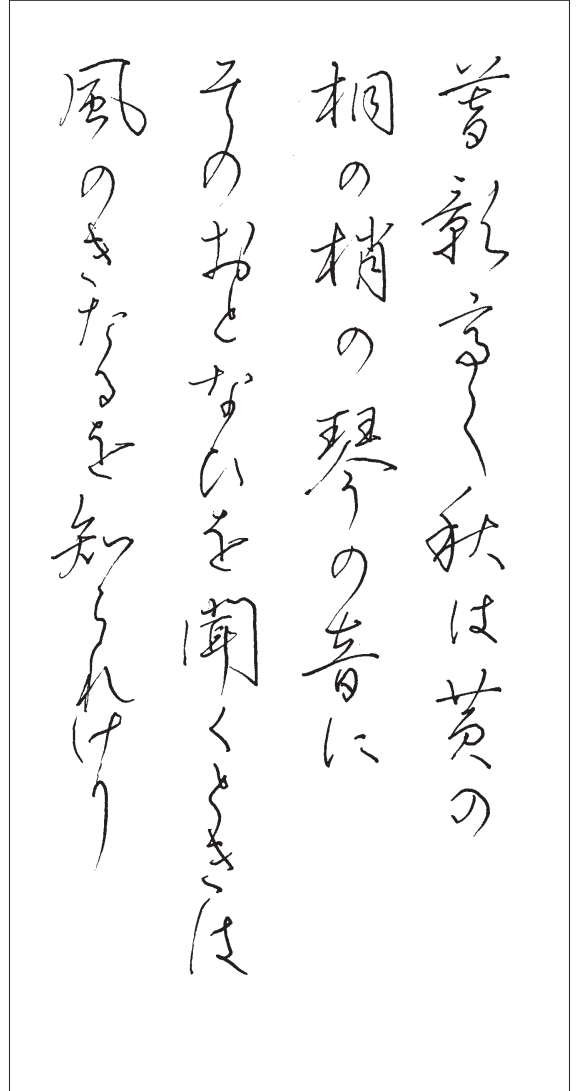 暮影高く秋は黄の
桐の梢の琴の音に
そのおとなひを聞くときは
風のきたるを知られけり